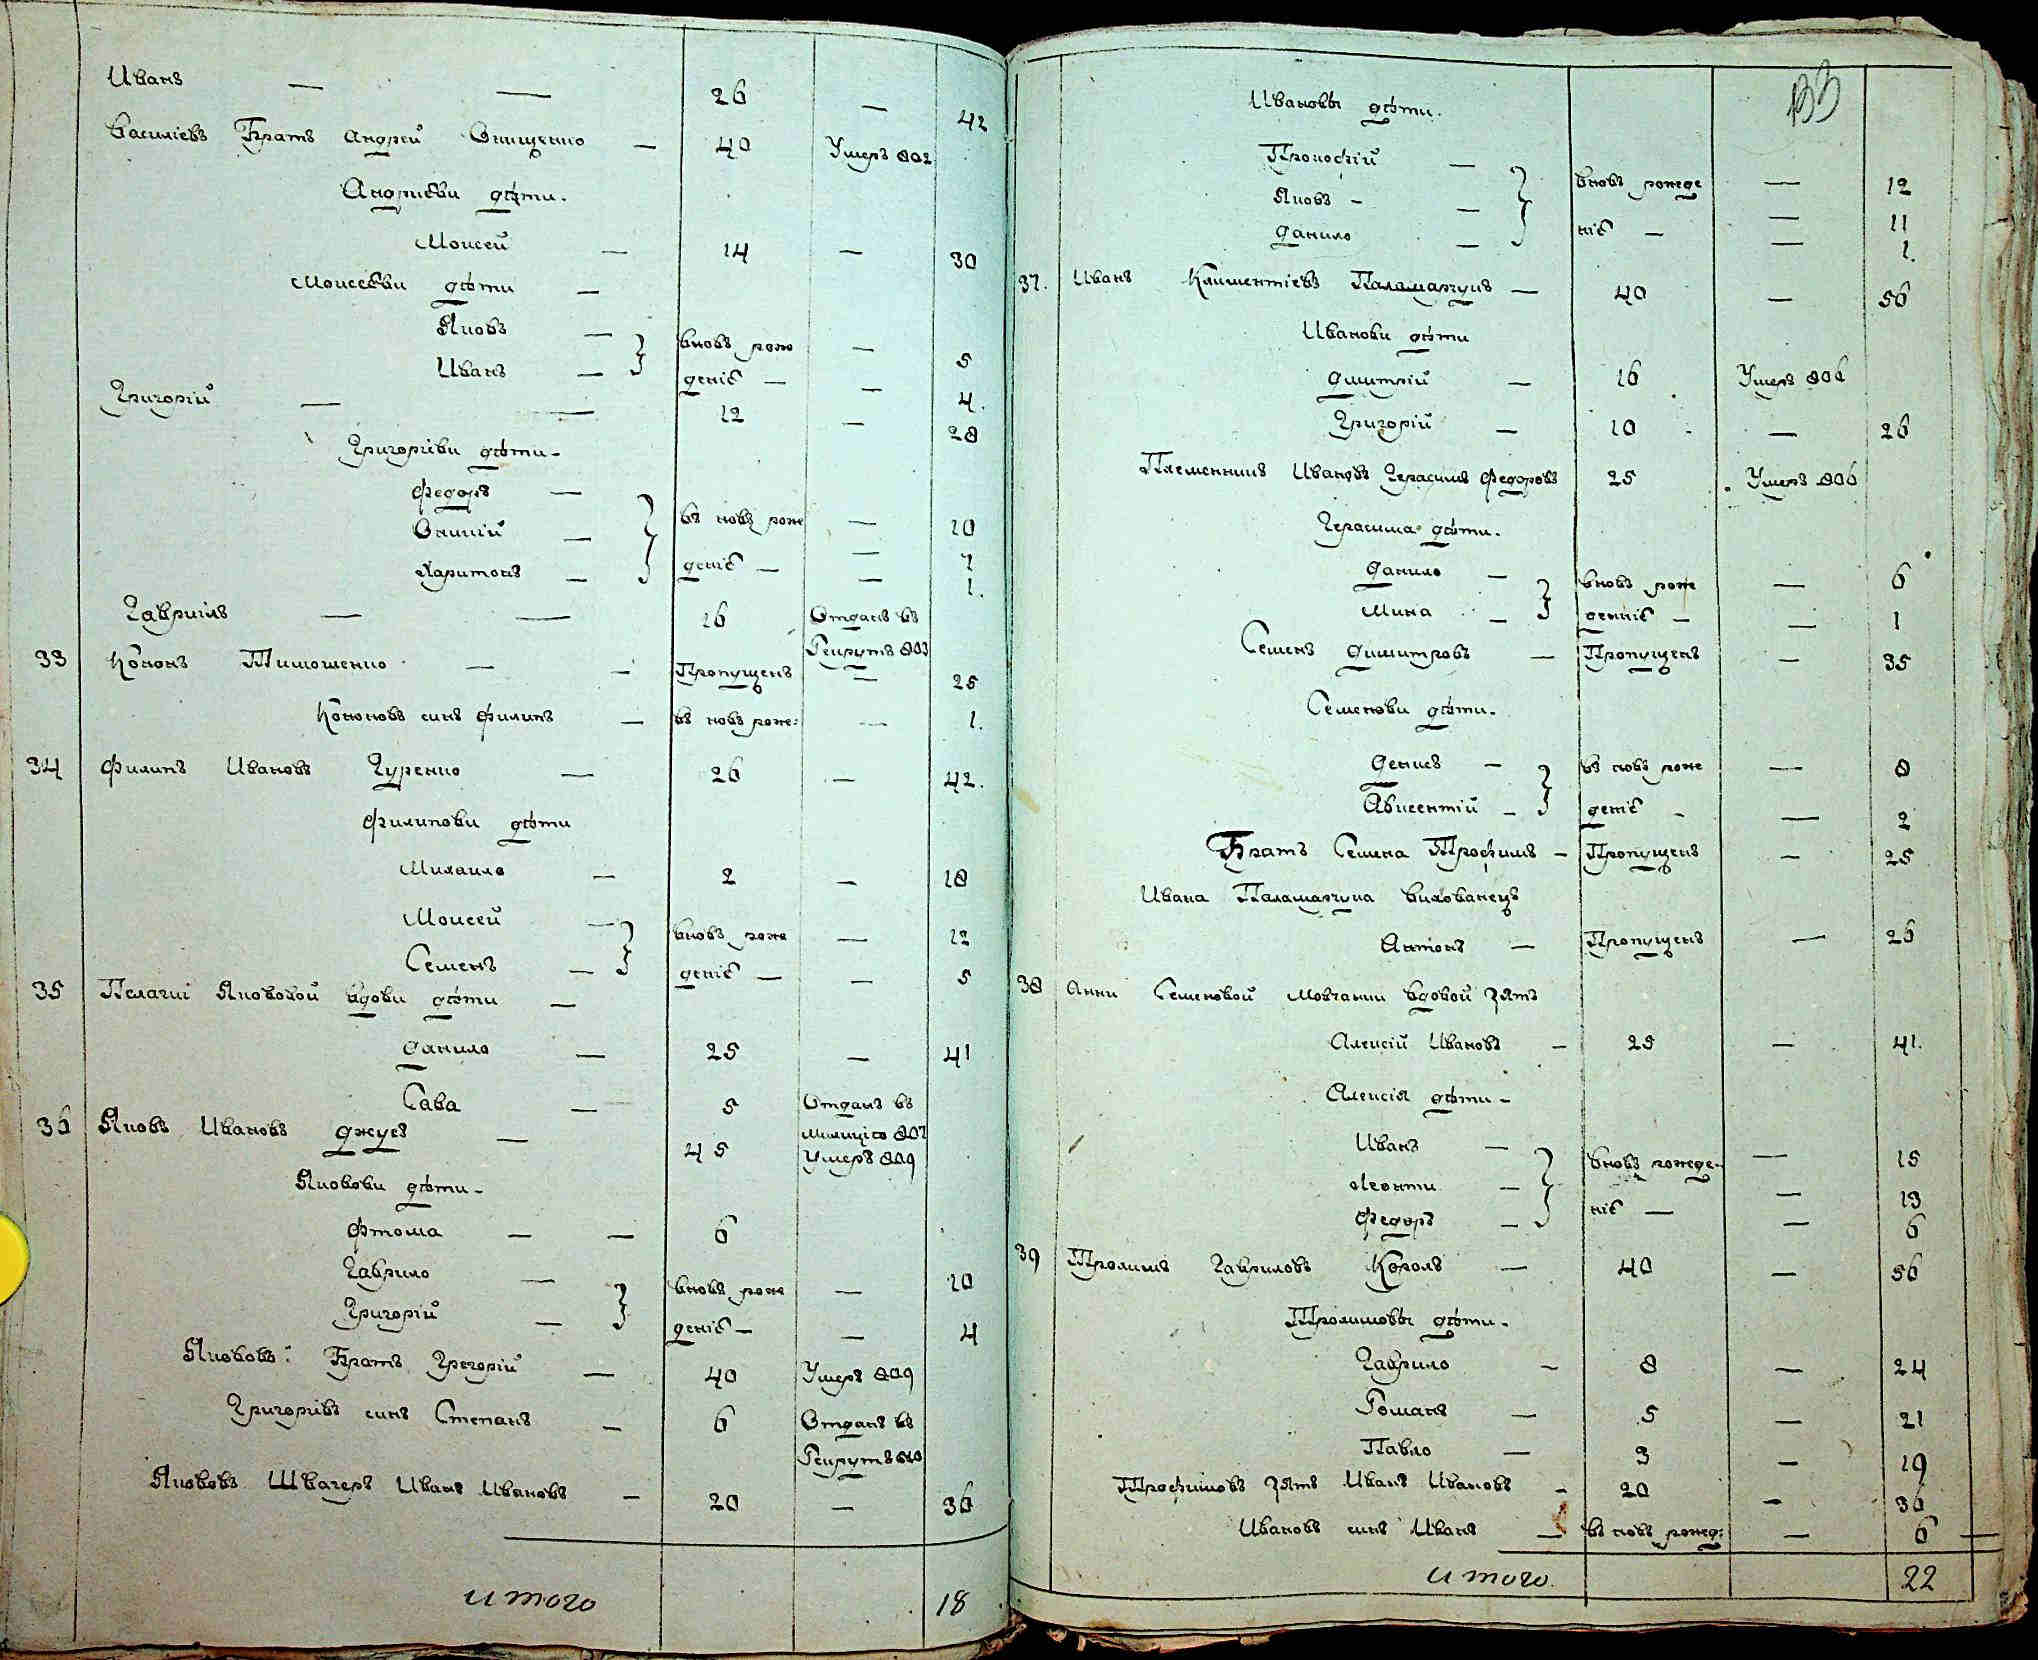 Иванъ — — 26 — 42
Василіевъ Братъ Андрей Онищенко — 40 Умеръ 802
Андріеви дѣти.
Моисей — 14 — 30
Моисеѣви дѣти —
Яковъ — вновь рож — 5
Иванъ — деніе — — 4.
Григорій — — 12 — 28
Григоріеви дѣти —
Федоръ — въ новъ рож — 10
Онисій — деніе — — 7
Харитонъ — — 1.
Гавриилъ — — 16 Отданъ въ
Рекрутъ 803
33 Кононъ Тимошенко — — Пропущенъ — 25
Кононовъ синъ Филипъ — въ новъ рож: — 1.
34 Филипъ Ивановъ Гуренко — 26 — 42.
Филипови дѣти
Михайло — 2 — 18
Моисей — вновь рож — 12
Семенъ — деніе — — 5
35 Пелагіи Якововой вдови дѣти —
Данило — 25 — 41
Сава — 5 Отданъ въ
Милицію 807
36 Яковъ Ивановъ Джусъ — 45 Умеръ 809
Яковови дѣти —
Фтома — — 6
Гаврило — вновь рож — 10
Григорій — деніе — — 4
Якововъ: Братъ Григорій — 40 Умеръ 809
Григоріевъ синъ Степанъ — 6 Отданъ въ
Рекрутъ 810
Якововъ Швагеръ Иванъ Ивановъ — 20 — 36
итого 18
133
Ивановы дѣти.
Прокофій — вновь рожде — 12
Яковъ — — 11
Данило — ніе — — 1.
37. Иванъ Климентіевъ Паламарчукъ — 40 — 56
Иванови дѣти
Дмитрій — 16 Умеръ 806
Григорій — 10 — 26
Племенникъ Ивановъ Герасимъ Федоровъ 25 Умеръ 806
Герасима дѣти.
Данило — вновь рож — 6
Мина — деніе — — 1
Семенъ Димитровъ — Пропущенъ — 35
Семенови дѣти.
Денисъ — въ новъ рож — 8
Авксентій — деніе — — 2
Братъ Семена Трофимъ — Пропущенъ — 25
Ивана Паламарчука вихованецъ
Антонъ — Пропущенъ — 26
38 Анни Семеновой Мовчанки вдовой зять
Алексій Ивановъ — 25 — 41.
Алексія дѣти —
Иванъ — вновь рожде — 15
Леонти — — 13
Федоръ — ніе — — 6
39 Трохимъ Гавриловъ Король — 40 — 56
Трохимовы дѣти.
Гаврило — 8 — 24
Романъ — 5 — 21
Павло — 3 — 19
Трофимовъ зять Иванъ Ивановъ — 20 — 36
Ивановъ синъ Иванъ — въ новъ рожд: — 6
итого 22